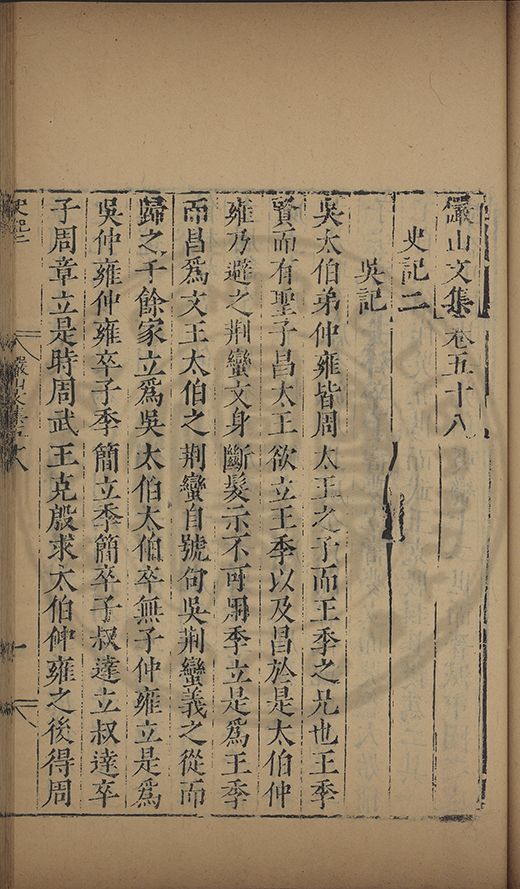 儼山文集卷五十八
史記二
吳記
吳太伯弟仲雍皆周太王之子而王季之兄也王季
賢而有聖子昌太王欲立王季以及昌於是太伯仲
雍乃避之荆蠻文身斷髮示不可用季立是爲王季
而昌爲文王太伯之荆蠻自號句吳荆蠻義之從而
歸之千餘家立爲吳太伯太伯卒無子仲雍立是爲
吳仲雍仲雍卒子季簡立季簡卒子叔達立叔達卒
子周章立是時周武王克殷求太伯仲雍之後得周
史記二